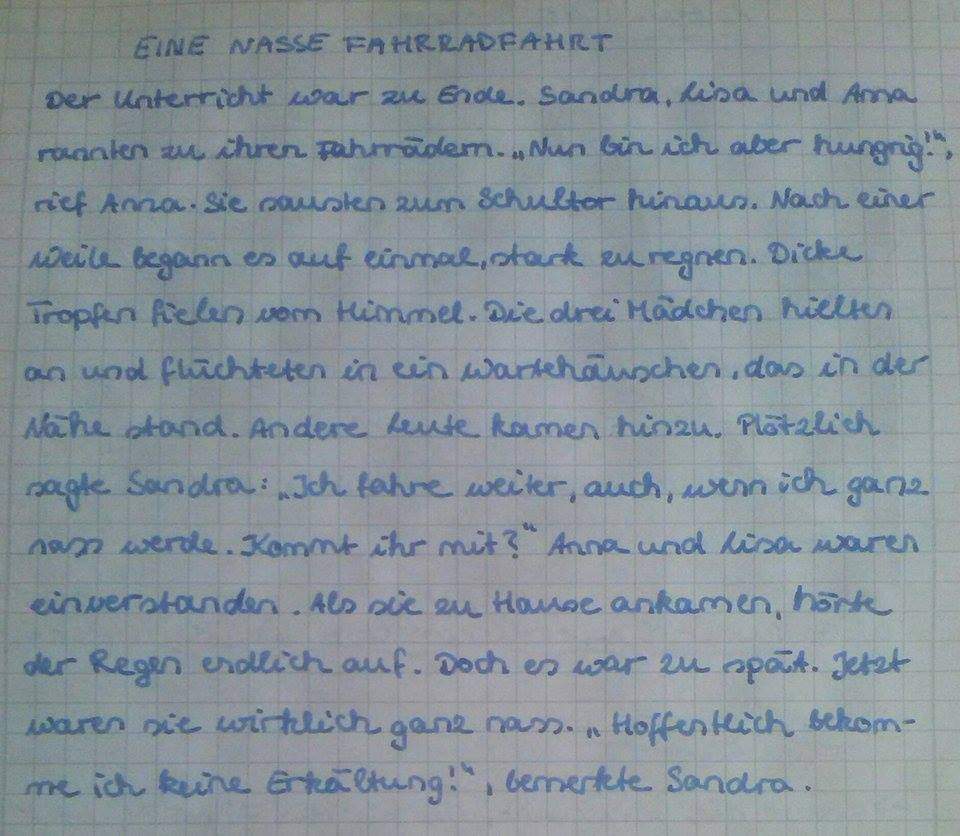 EINE NASSE FAHRRADFAHRT
Der Unterricht war zu Ende. Sandra, Lisa und Anna
rannten zu ihren Fahrrädern. „Nun bin ich aber hungrig!“,
rief Anna. Sie sausten zum Schultor hinaus. Nach einer
Weile begann es auf einmal, stark zu regnen. Dicke
Tropfen fielen vom Himmel. Die drei Mädchen hielten
an und flüchteten in ein Wartehäuschen, das in der
Nähe stand. Andere Leute kamen hinzu. Plötzlich
sagte Sandra: „Ich fahre weiter, auch, wenn ich ganz
nass werde. Kommt ihr mit?“ Anna und Lisa waren
einverstanden. Als sie zu Hause ankamen, hörte
der Regen endlich auf. Doch es war zu spät. Jetzt
waren sie wirklich ganz nass. „Hoffentlich bekom-
me ich keine Erkältung!“, bemerkte Sandra.